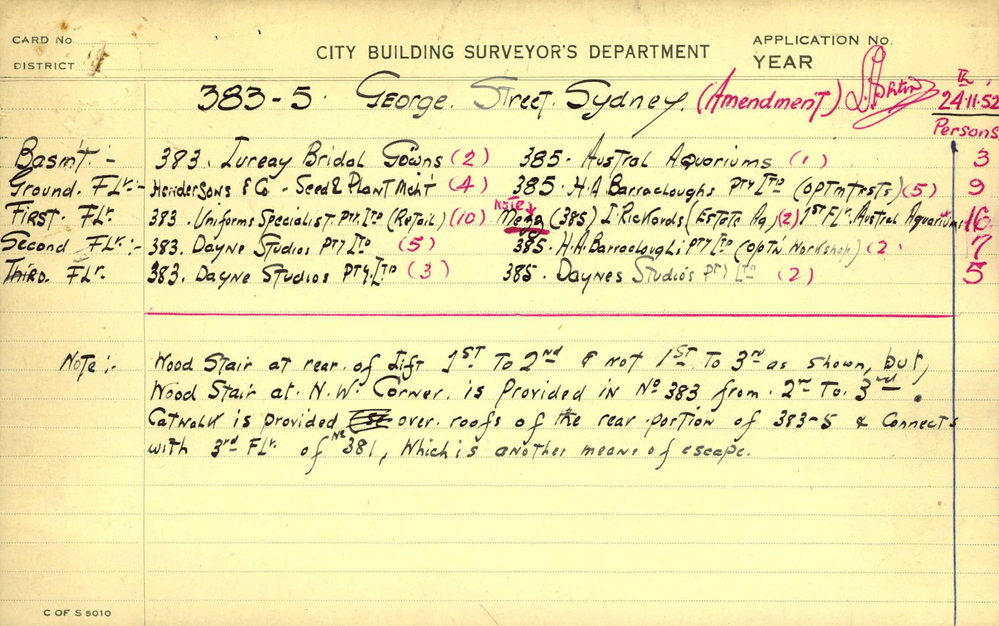 CARD No.
DISTRICT
CITY BUILDING SURVEYOR'S DEPARTMENT
APPLICATION No.
YEAR
383-5. George. Street. Sydney. (Amendment)
24.11.52
Persons
Basm't :- 383. Lureay Bridal Gowns (2) 385. Austral Aquariums (1) 3
Ground. Flr. :- Hendersons & Co - Seed & Plant Mcht (4) 385. H.A Barracloughs Pty Ltd (optmtrsts) (5) 9
Note
First. Flr. 383. Uniforms Specialist Pty. Ltd (Retail) (10) Mezz (385) L Rickards (Estate Ag) (2) 1st Flr. Austral Aquariums 16
Second Flr. :- 383. Dayne Studios Pty Ltd (5) 385. H.A Barraclough Pty Ltd (optn Workshop) (2) 7
Third. Flr. 383. Dayne Studios Pty. Ltd (3) 385. Daynes Studios Pty Ltd (2) 5
Note :- Wood Stair at rear of Lift 1st To 2nd & not 1st To 3rd as shown, but,
Wood Stair at. N.W. Corner. is Provided in No 383 from. 2nd To. 3rd.
Catwalk is provided over. roofs of the rear portion of 383-5 & Connects
with 3rd Flr. of No 381, Which is another means of escape.
C OF S 5010